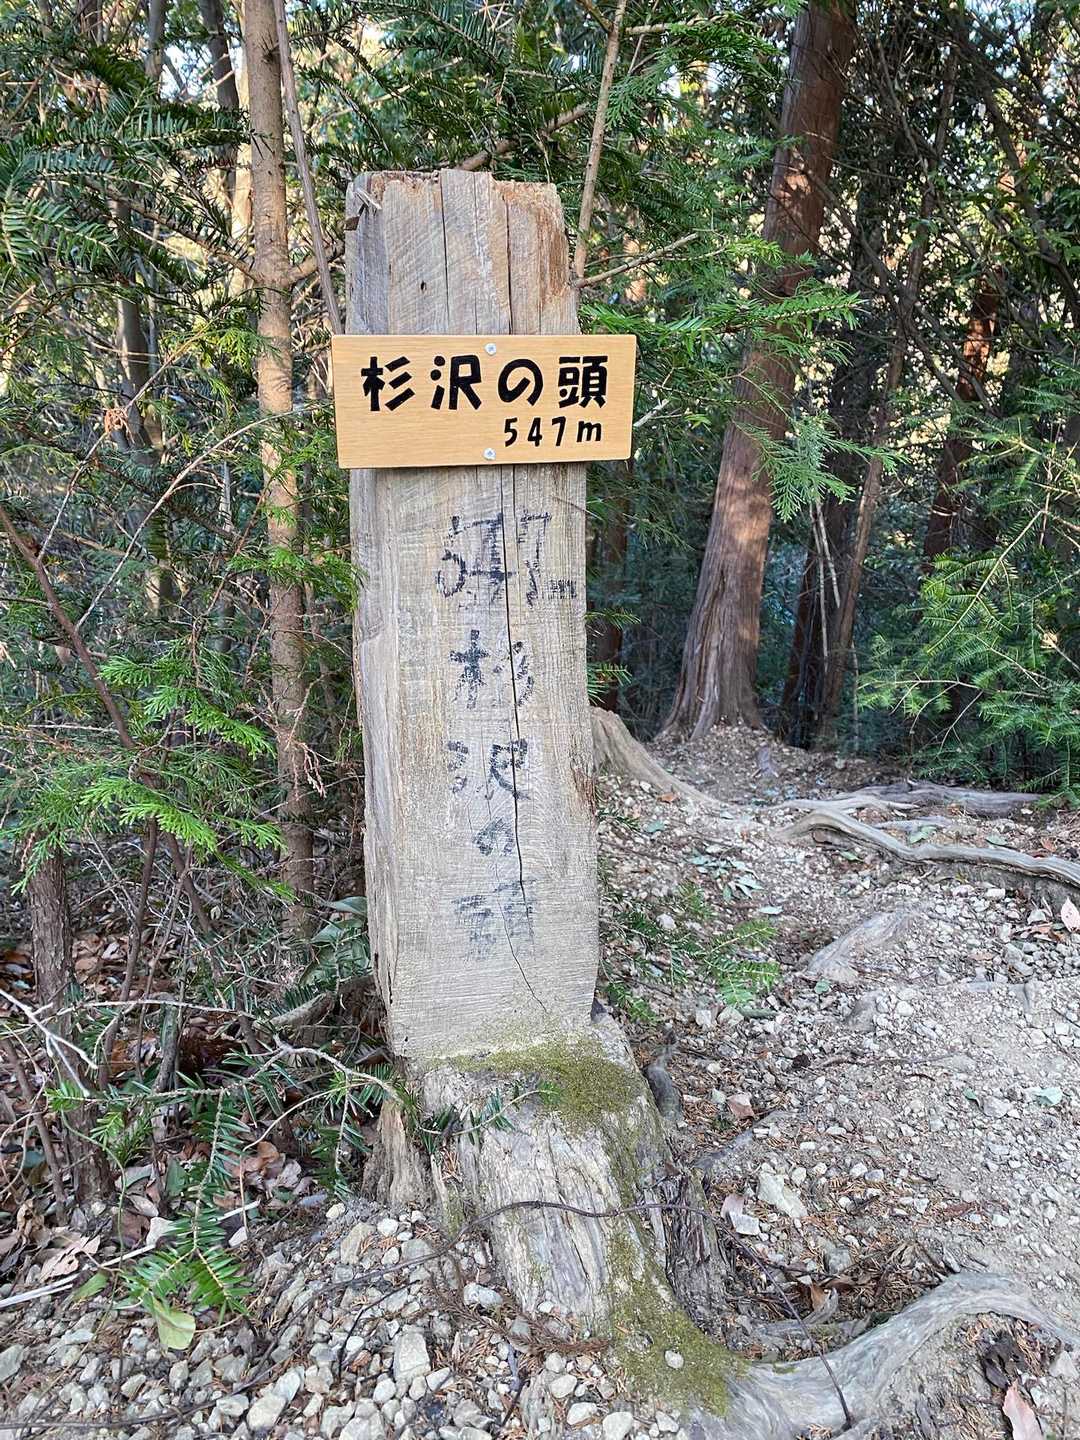 杉沢の頭
547m
547m
杉沢の頭